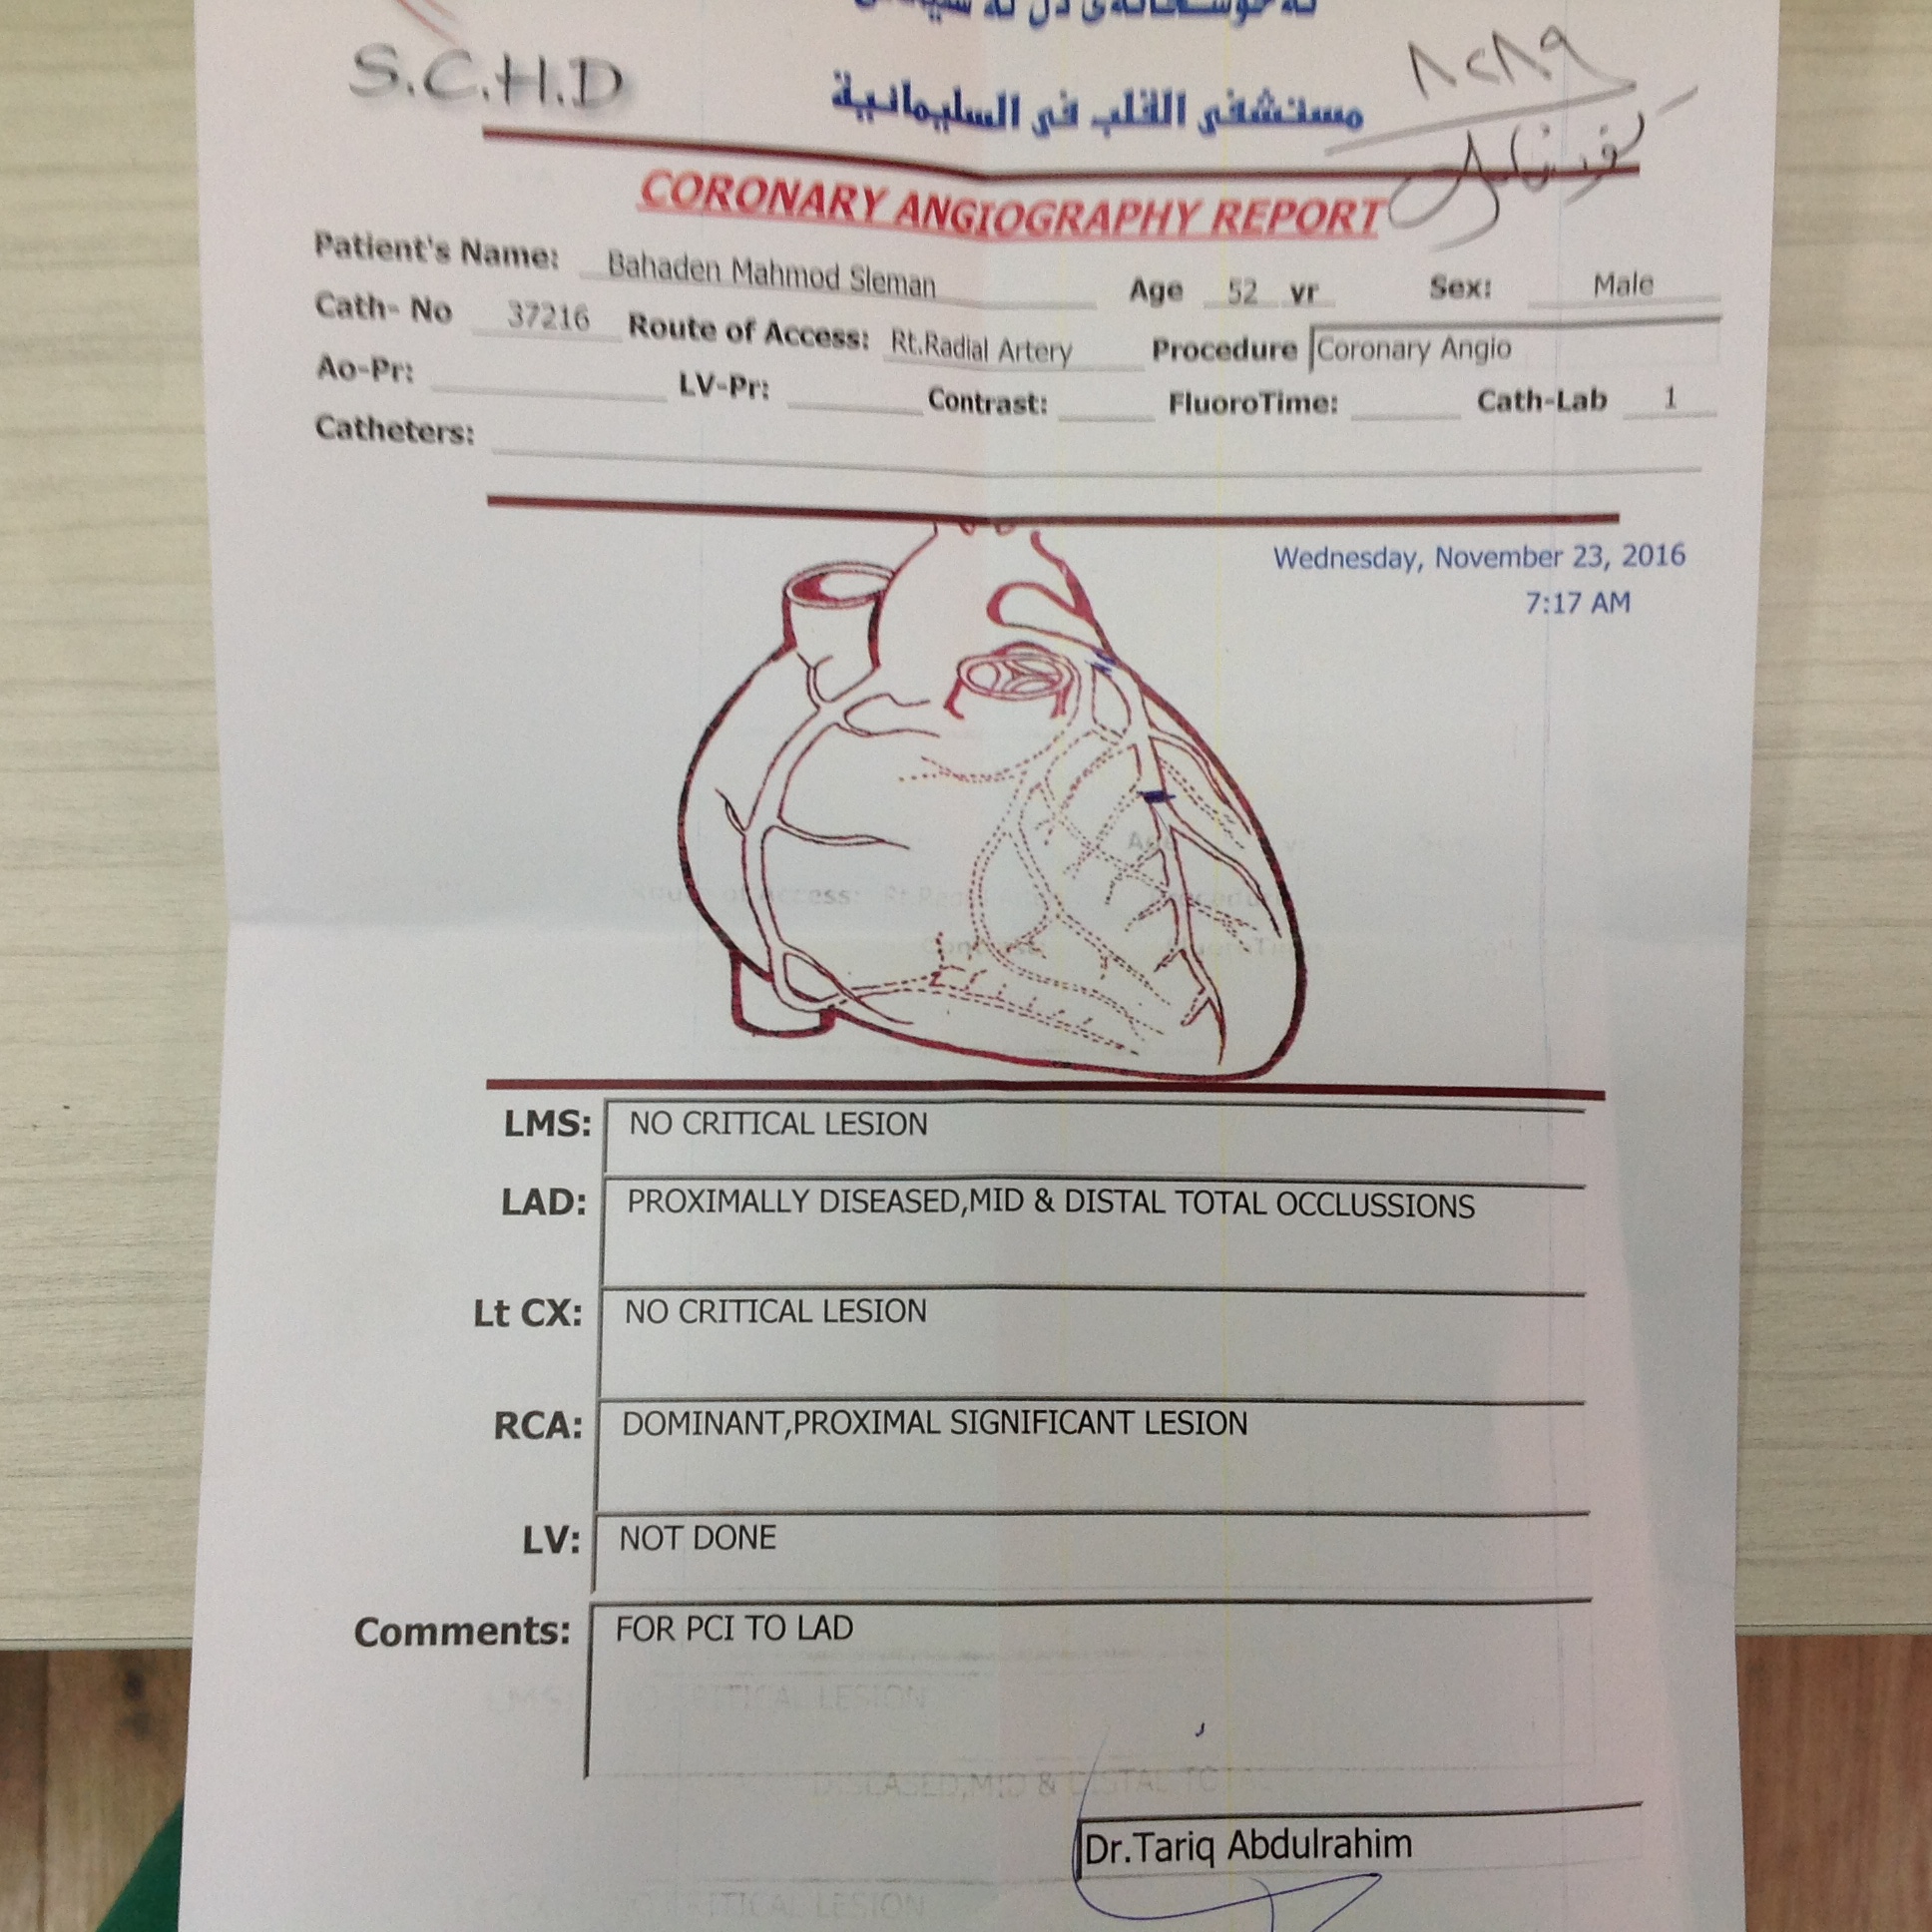 S.C.H.D
مستشفى القلب في السليمانية
٨٢٨٩
CORONARY ANGIOGRAPHY REPORT
Patient's Name: Bahaden Mahmod Sleman Age 52 yr Sex: Male
Cath- No 37216 Route of Access: Rt.Radial Artery Procedure Coronary Angio
Ao-Pr: LV-Pr: Contrast: FluoroTime: Cath-Lab 1
Catheters:
Wednesday, November 23, 2016
7:17 AM
LMS: NO CRITICAL LESION
LAD: PROXIMALLY DISEASED,MID & DISTAL TOTAL OCCLUSSIONS
Lt CX: NO CRITICAL LESION
RCA: DOMINANT,PROXIMAL SIGNIFICANT LESION
LV: NOT DONE
Comments: FOR PCI TO LAD
Dr.Tariq Abdulrahim